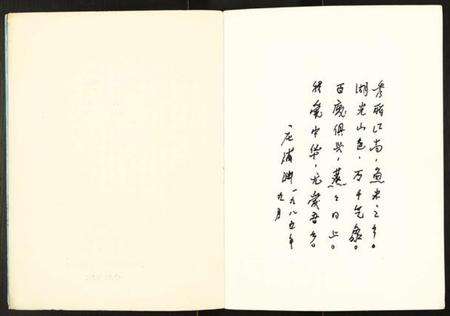 秀丽江南，鱼米之乡。
湖光山色，万千气象。
百废俱兴，蒸々日上。
我爱中华，尤爱吾乡。
一九八五年
九月